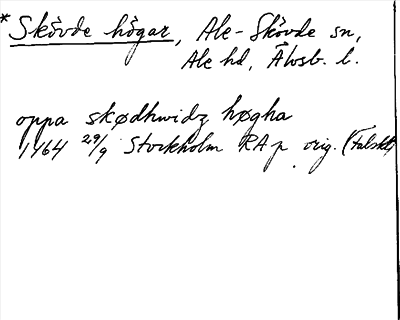 *Skövde högar, Ale-Skövde sn,
Ale hd, Älvsb. l.
oppa skødhwidz høgha
1464 29/9 Stockholm RAp orig. (Falskt)